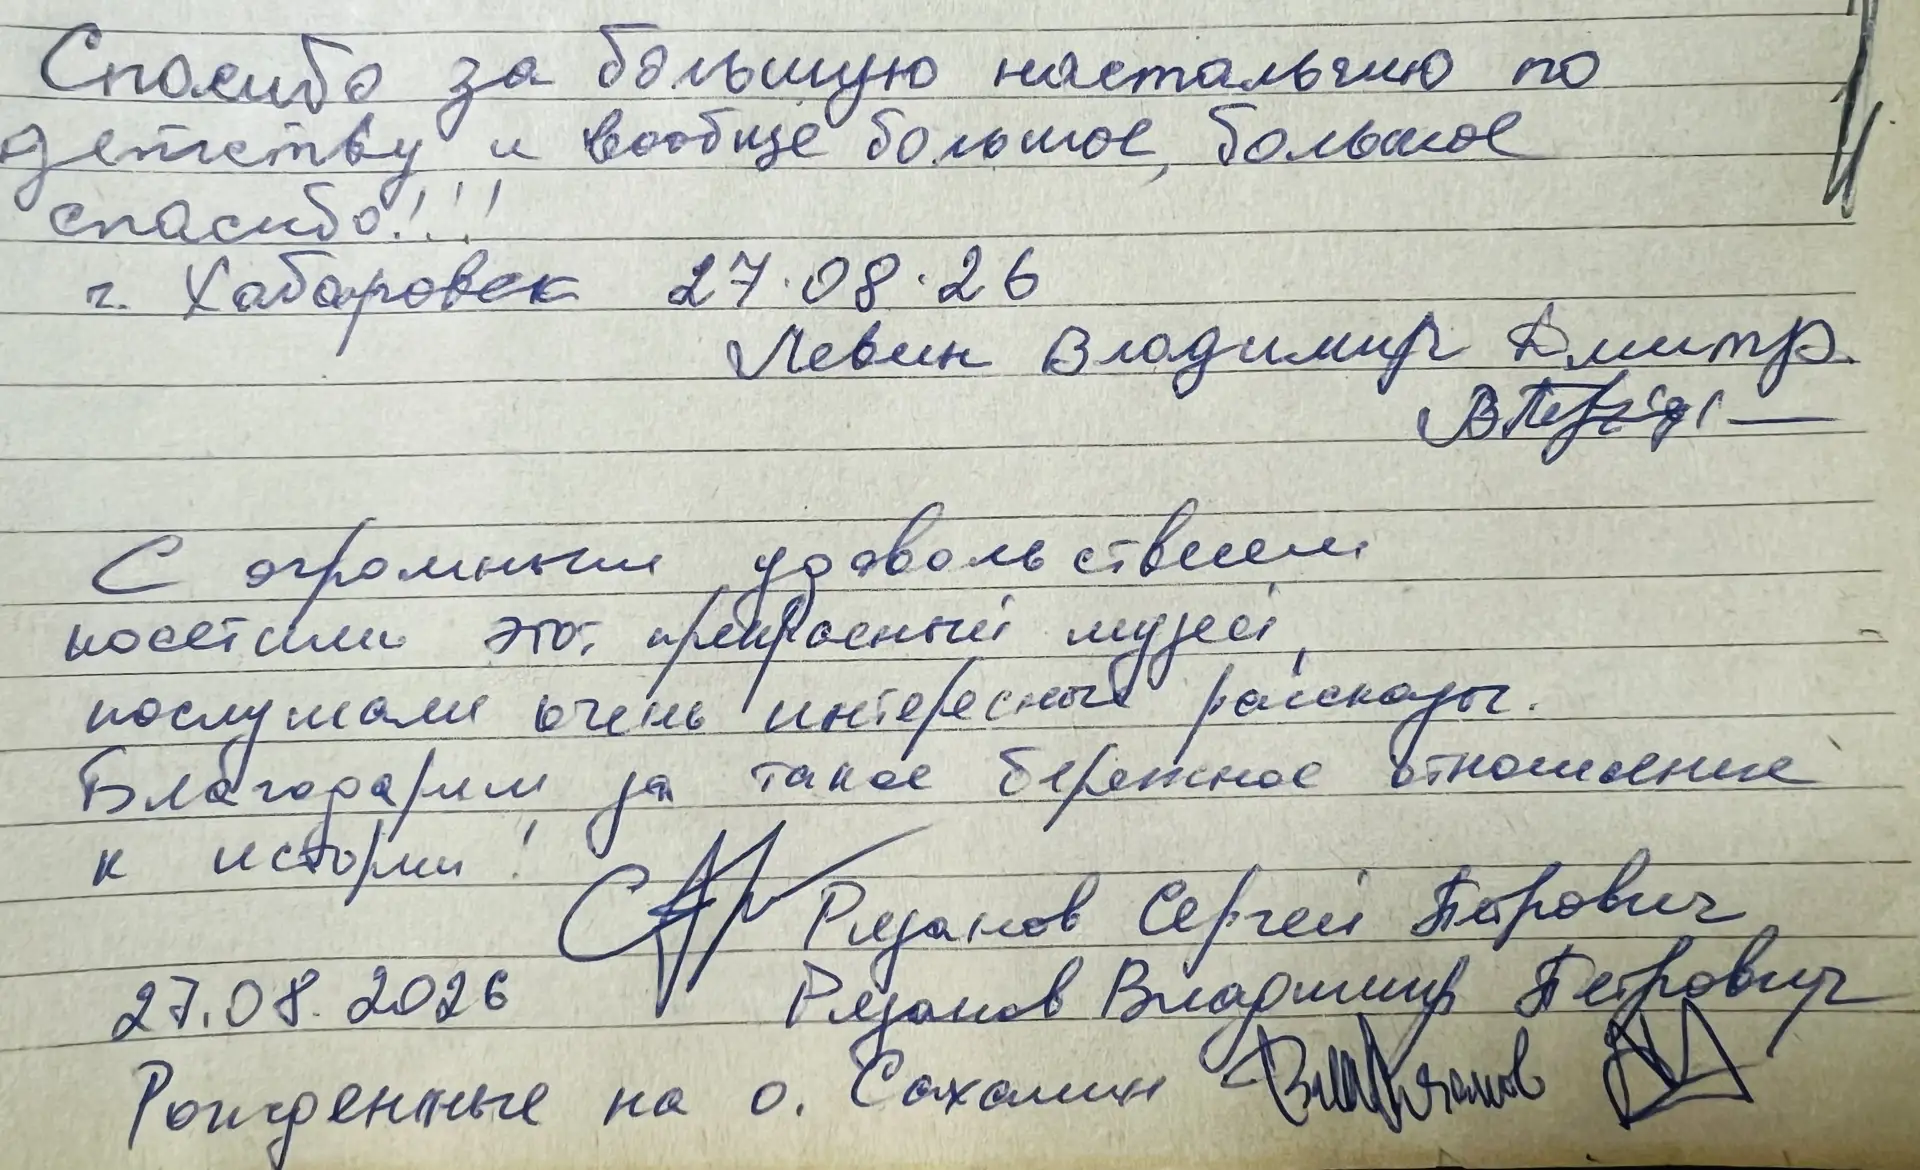 Спасибо за большую настальгию по
детству и вообще большое, большое
спасибо!!!
г. Хабаровск 27.08.26
Левин Владимир Дмитр.
С огромным удовольствием
посетили этот прекрасный музей,
послушали очень интересные рассказы.
Благодарим за такое бережное отношение
к истории!
Рязанов Сергей Петрович
27.08.2026 Рязанов Владимир Петрович
Рожденные на о. Сахалин